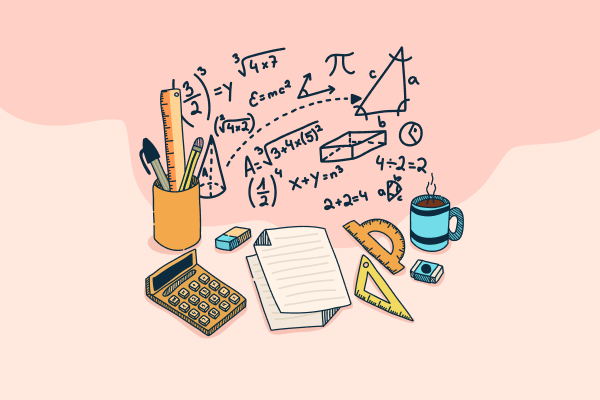 ∛4×7
(3/2)³=Y
E=mc²
π
c
a
b
(∛4×2)
A=∛3+4×(5)²
(1/2)⁴
x+y=n³
4÷2=2
2+2=4
A
a
b
c